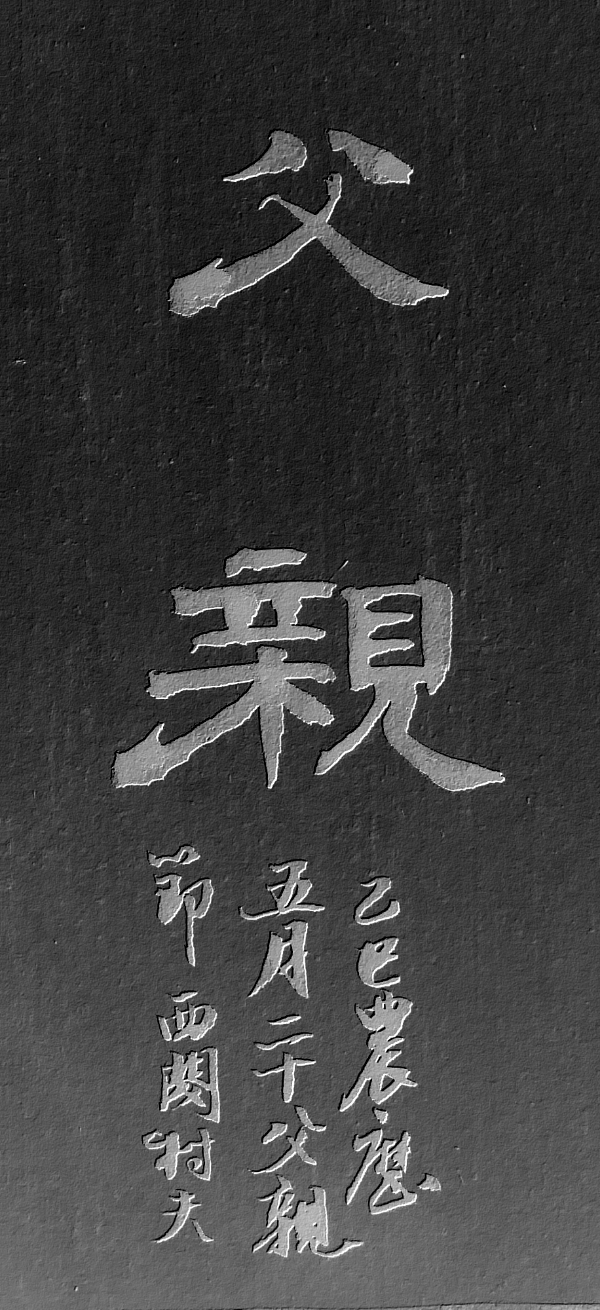 父
親
乙巳農曆
五月二十父親
節 西関村夫